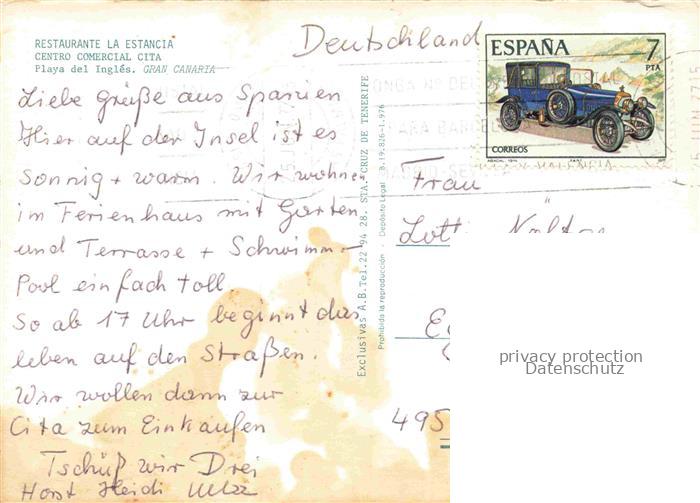 RESTAURANTE LA ESTANCIA
CENTRO COMERCIAL CITA
Playa del Inglés. GRAN CANARIA
Liebe grüße aus Spanien
Hier auf der Insel ist es
Sonnig + warm. Wir wohnen
im Ferienhaus mit Garten
und Terrasse + Schwimm-
Pool einfach toll.
So ab 17 Uhr beginnt das
leben auf den Straßen.
Wir wollen dann zur
Cita zum Einkaufen
Tschüß wir Drei
Horst Heidi
Exclusivas A.B.Tel.22 94 28. STA. CRUZ DE TENERIFE
Prohibida la reproducción - Depósito Legal B-19.826-1.976
Deutschland
ESPAÑA 7
PTA
CORREOS
PARA BARCEL
VALENCIA
Frau
495
privacy protection
Datenschutz